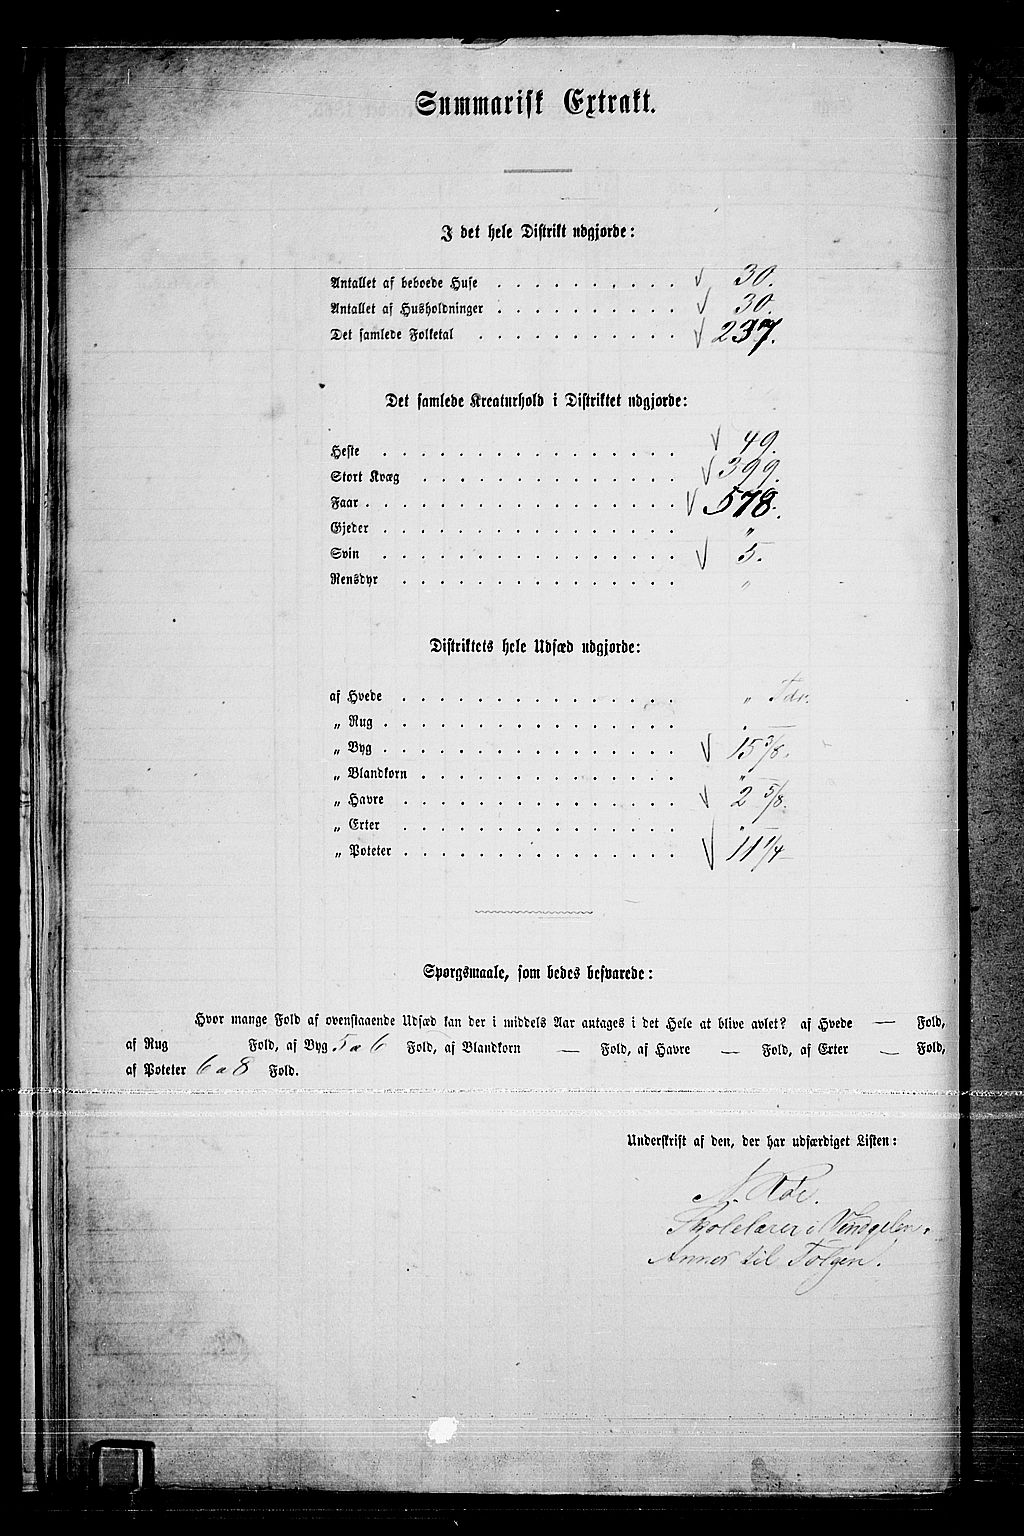 Summarisk Extrakt.
I det hele Distrikt udgjorde:
Antallet af beboede Huse . . . . . . . . . . 30.
Antallet af Husholdninger . . . . . . . . . . 30.
Det samlede Folketal . . . . . . . . . . . 237.
Det samlede Kreaturhold i Distriktet udgjorde:
Heste . . . . . . . . . . . . . . . 49.
Stort Kvæg . . . . . . . . . . . . . 399.
Faar . . . . . . . . . . . . . . . . 578.
Gjeder . . . . . . . . . . . . . . . "
Svin . . . . . . . . . . . . . . . 5.
Rensdyr . . . . . . . . . . . . . . "
Distriktets hele Udsæd udgjorde:
af Hvede . . . . . . . . . . . . . . " Tdr.
„ Rug . . . . . . . . . . . . . . .
„ Byg . . . . . . . . . . . . . . . 15 3/8.
„ Blandkorn . . . . . . . . . . . . . "
„ Havre . . . . . . . . . . . . . . 2 5/8.
„ Erter . . . . . . . . . . . . . . "
„ Poteter . . . . . . . . . . . . . . 11 1/4
Spørgsmaale, som bedes besvarede:
Hvor mange Fold af ovenstaaende Udsæd kan der i middels Aar antages i det Hele at blive avlet? af Hvede — Fold,
af Rug Fold, af Byg 5 a 6 Fold, af Blandkorn — Fold, af Havre — Fold, af Erter — Fold,
af Poteter 6 a 8 Fold.
Underskrift af den, der har udfærdiget Listen:
N.
Skolelærer i Vingelen.
Annex til Tolgen.